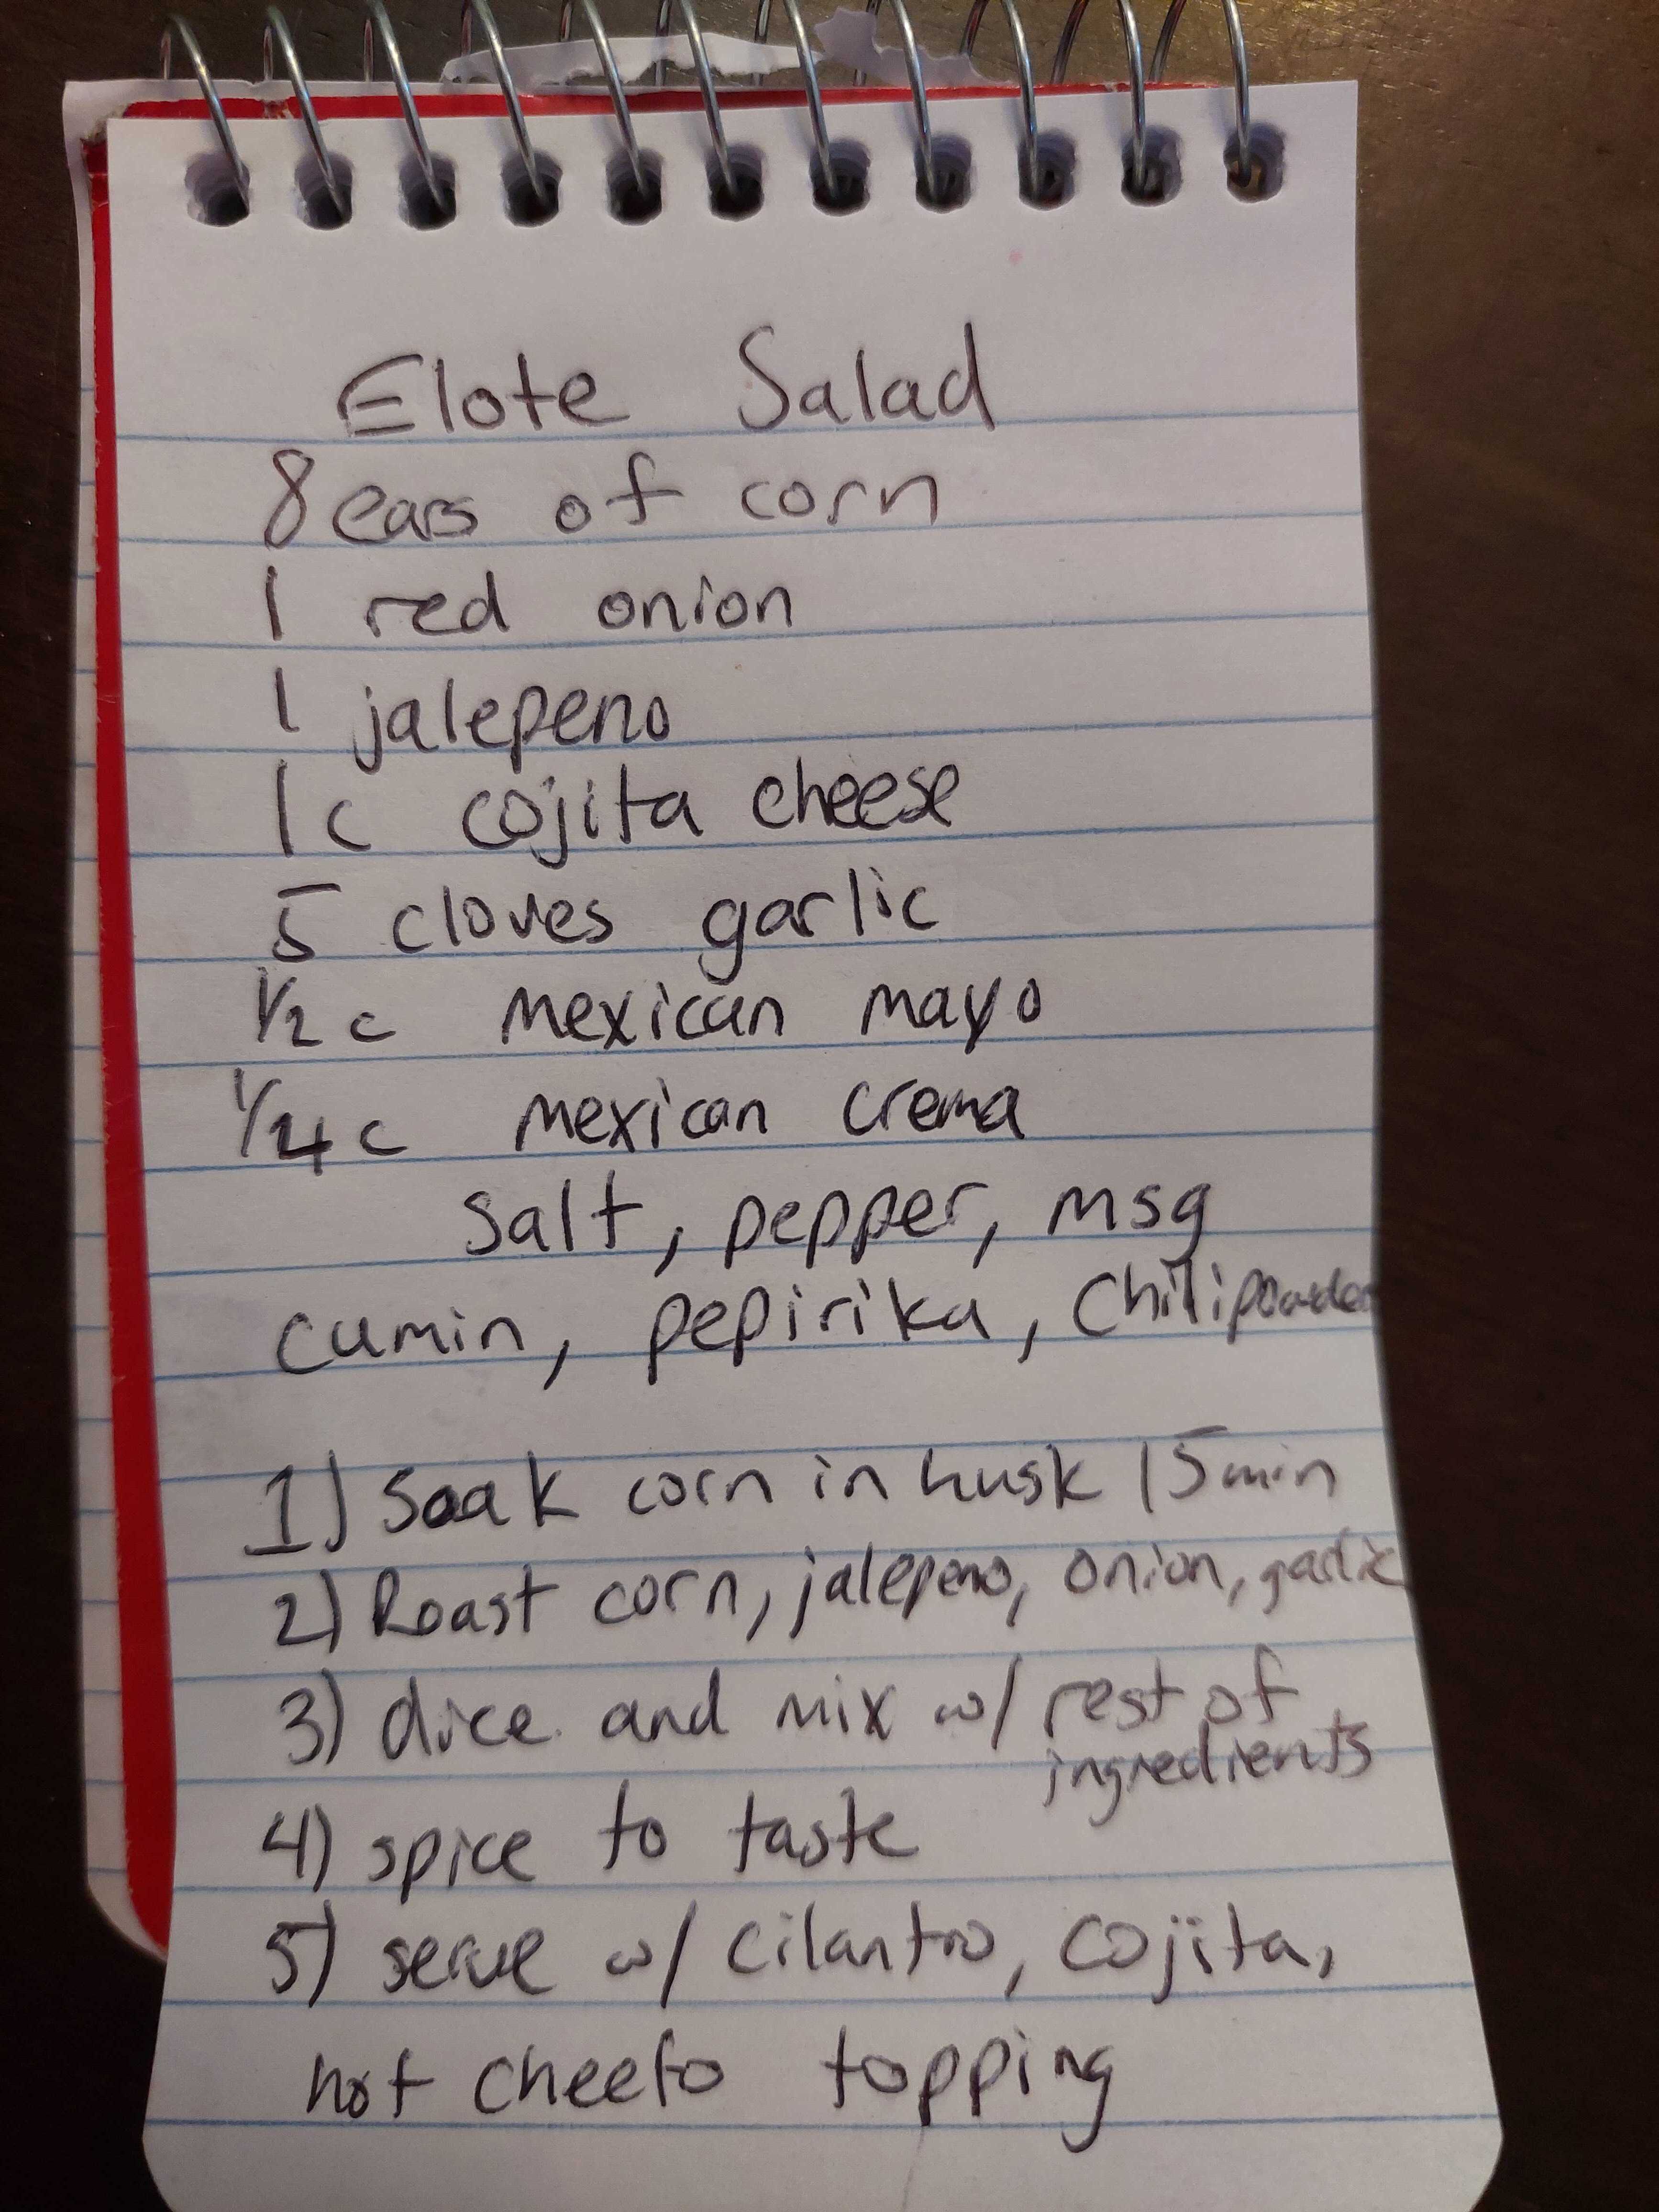 Elote Salad
8 ears of corn
1 red onion
1 jalepeno
1 c cojita cheese
5 cloves garlic
1/2 c mexican mayo
1/4 c mexican crema
salt, pepper, msg
cumin, pepirika, chilipowder
1) Soak corn in husk 15 min
2) Roast corn, jalepeno, onion, garlic
3) dice and mix w/ rest of
ingredients
4) spice to taste
5) serve w/ cilantro, cojita,
hot cheeto topping